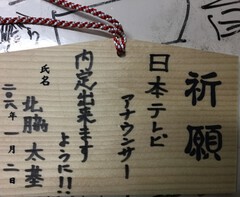 祈願
日本テレビ
アナウンサー
内定出来ます
ように!!
氏名 北脇太基
二〇一八年一月二日